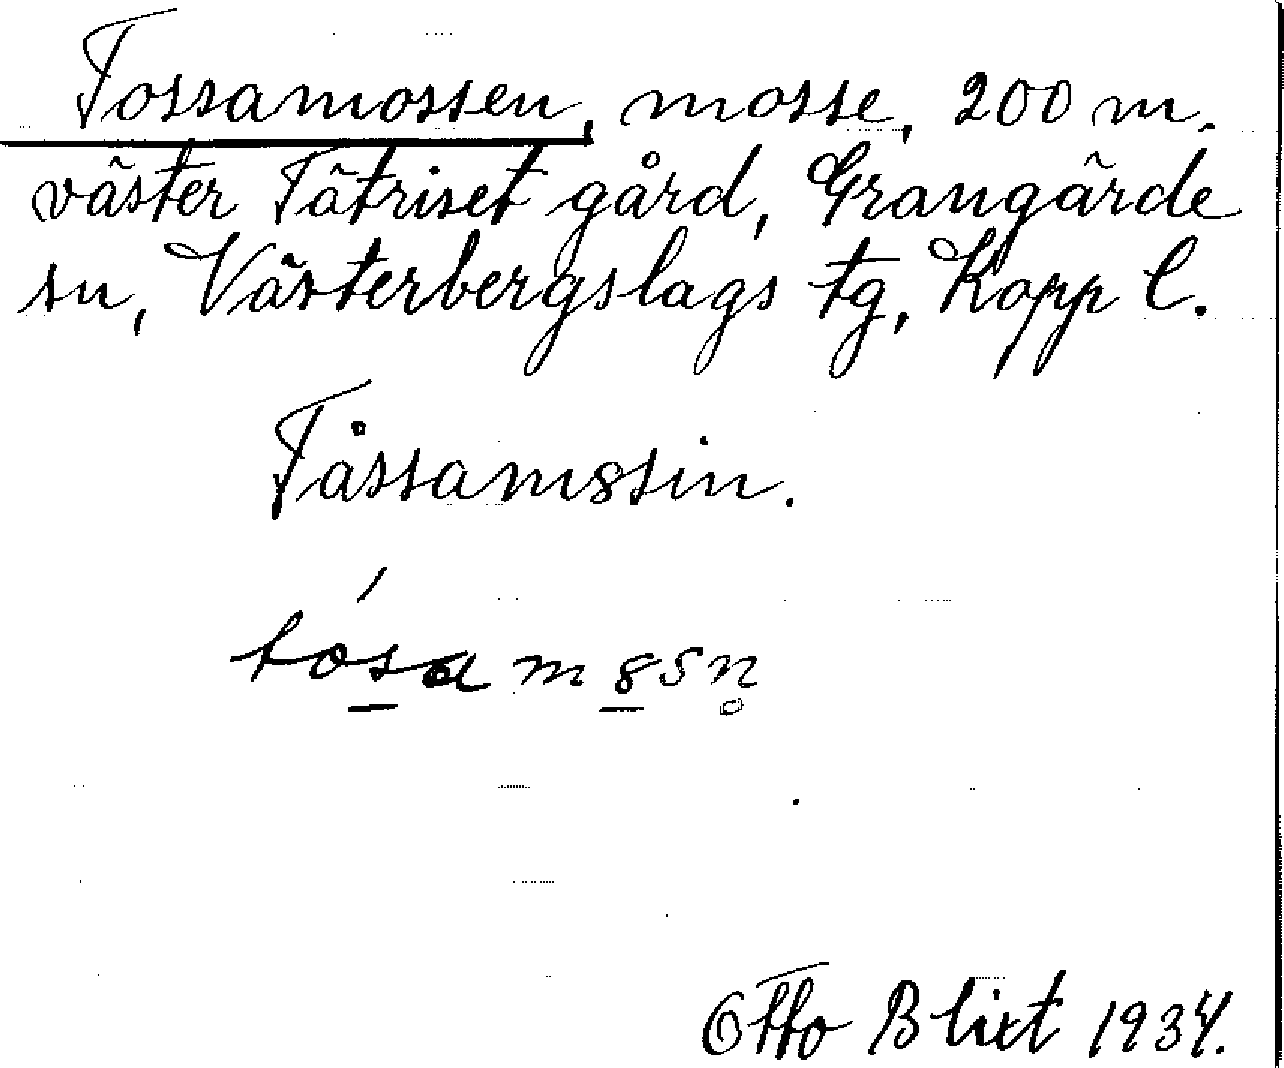 Tossamossen, mosse, 200 m.
väster Tätriset gård, Grangärde
sn, Västerbergslags tg, Kopp l.
Tåssamȣsin.
tósam ȣsn̥
Otto Blixt 1934.